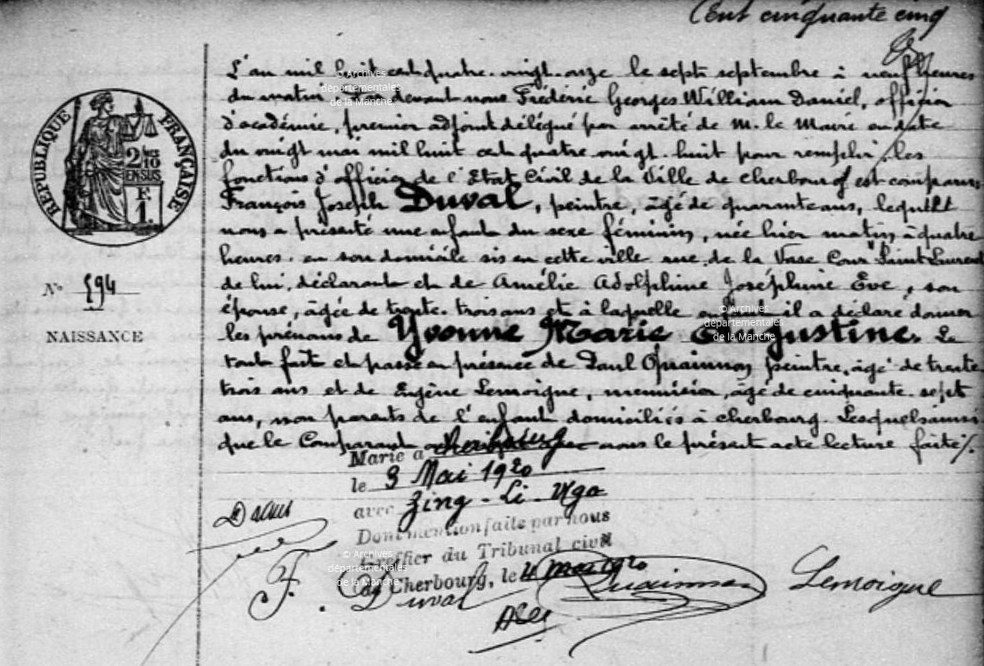 Cent cinquante cinq
L'an mil huit cent quatre-vingt-onze le sept septembre à neuf heures
du matin devant nous Frédéric Georges William Daniel, officier
d'académie, premier adjoint délégué par arrêté de M. le Maire en date
du vingt mai mil huit cent quatre vingt-huit pour remplir les
fonctions d'officier de l'Etat Civil de la Ville de Cherbourg est comparu
François Joseph Duval, peintre, âgé de quarante ans, lequel
nous a présenté une enfant du sexe féminin, née hier matin à quatre
heures en son domicile sis en cette ville rue de la Vase Cour Saint Laurent
de lui, déclarant et de Amélie Adolphine Joséphine Eve, son
épouse, âgée de trente-trois ans et à laquelle il a déclaré donner
les prénoms de Yvonne Marie Augustine. Le
tout fait et passé en présence de Paul Quainnon peintre, âgé de trente
trois ans et de Eugène Lemoigne, menuisier, âgé de cinquante-sept
ans, non parents de l'enfant domiciliés à Cherbourg. Lesquels ainsi
que le Comparant ont signé avec nous le présent acte lecture faite /.
RÉPUBLIQUE FRANÇAISE
N° 594
NAISSANCE
Marié à Cherbourg
le 3 Mai 1920
avec Zing-Li-Nga
Dont mention faite par nous
Greffier du Tribunal civil
de Cherbourg, le 4 mai 1920
F. Duval
Quainnon
Lemoigne
© Archives
départementales
de la Manche
© Archives
départementales
de la Manche
© Archives
départementales
de la Manche